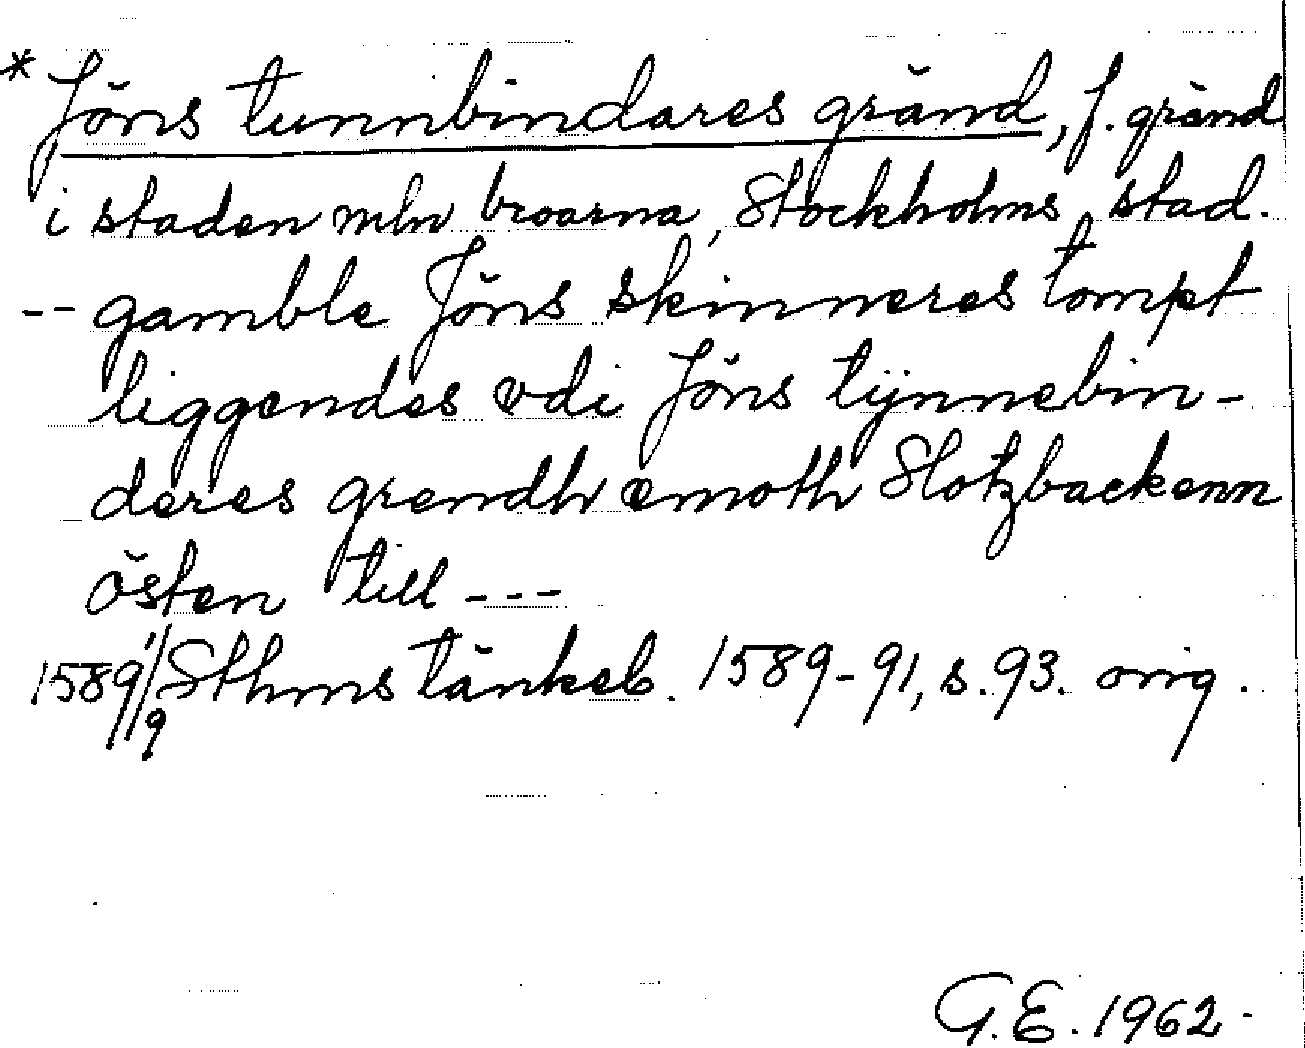 * Jöns tunnbindares gränd, f. gränd
i staden mln broarna, Stockholms stad.
-- gamble Jöns skinneres tompt
liggendes vdi Jöns tÿnnebin-
deres grendh emoth Slotzbackenn
östen till ---
1589 1/9 Sthms tänkeb. 1589-91, s. 93. orig.
G.E. 1962.